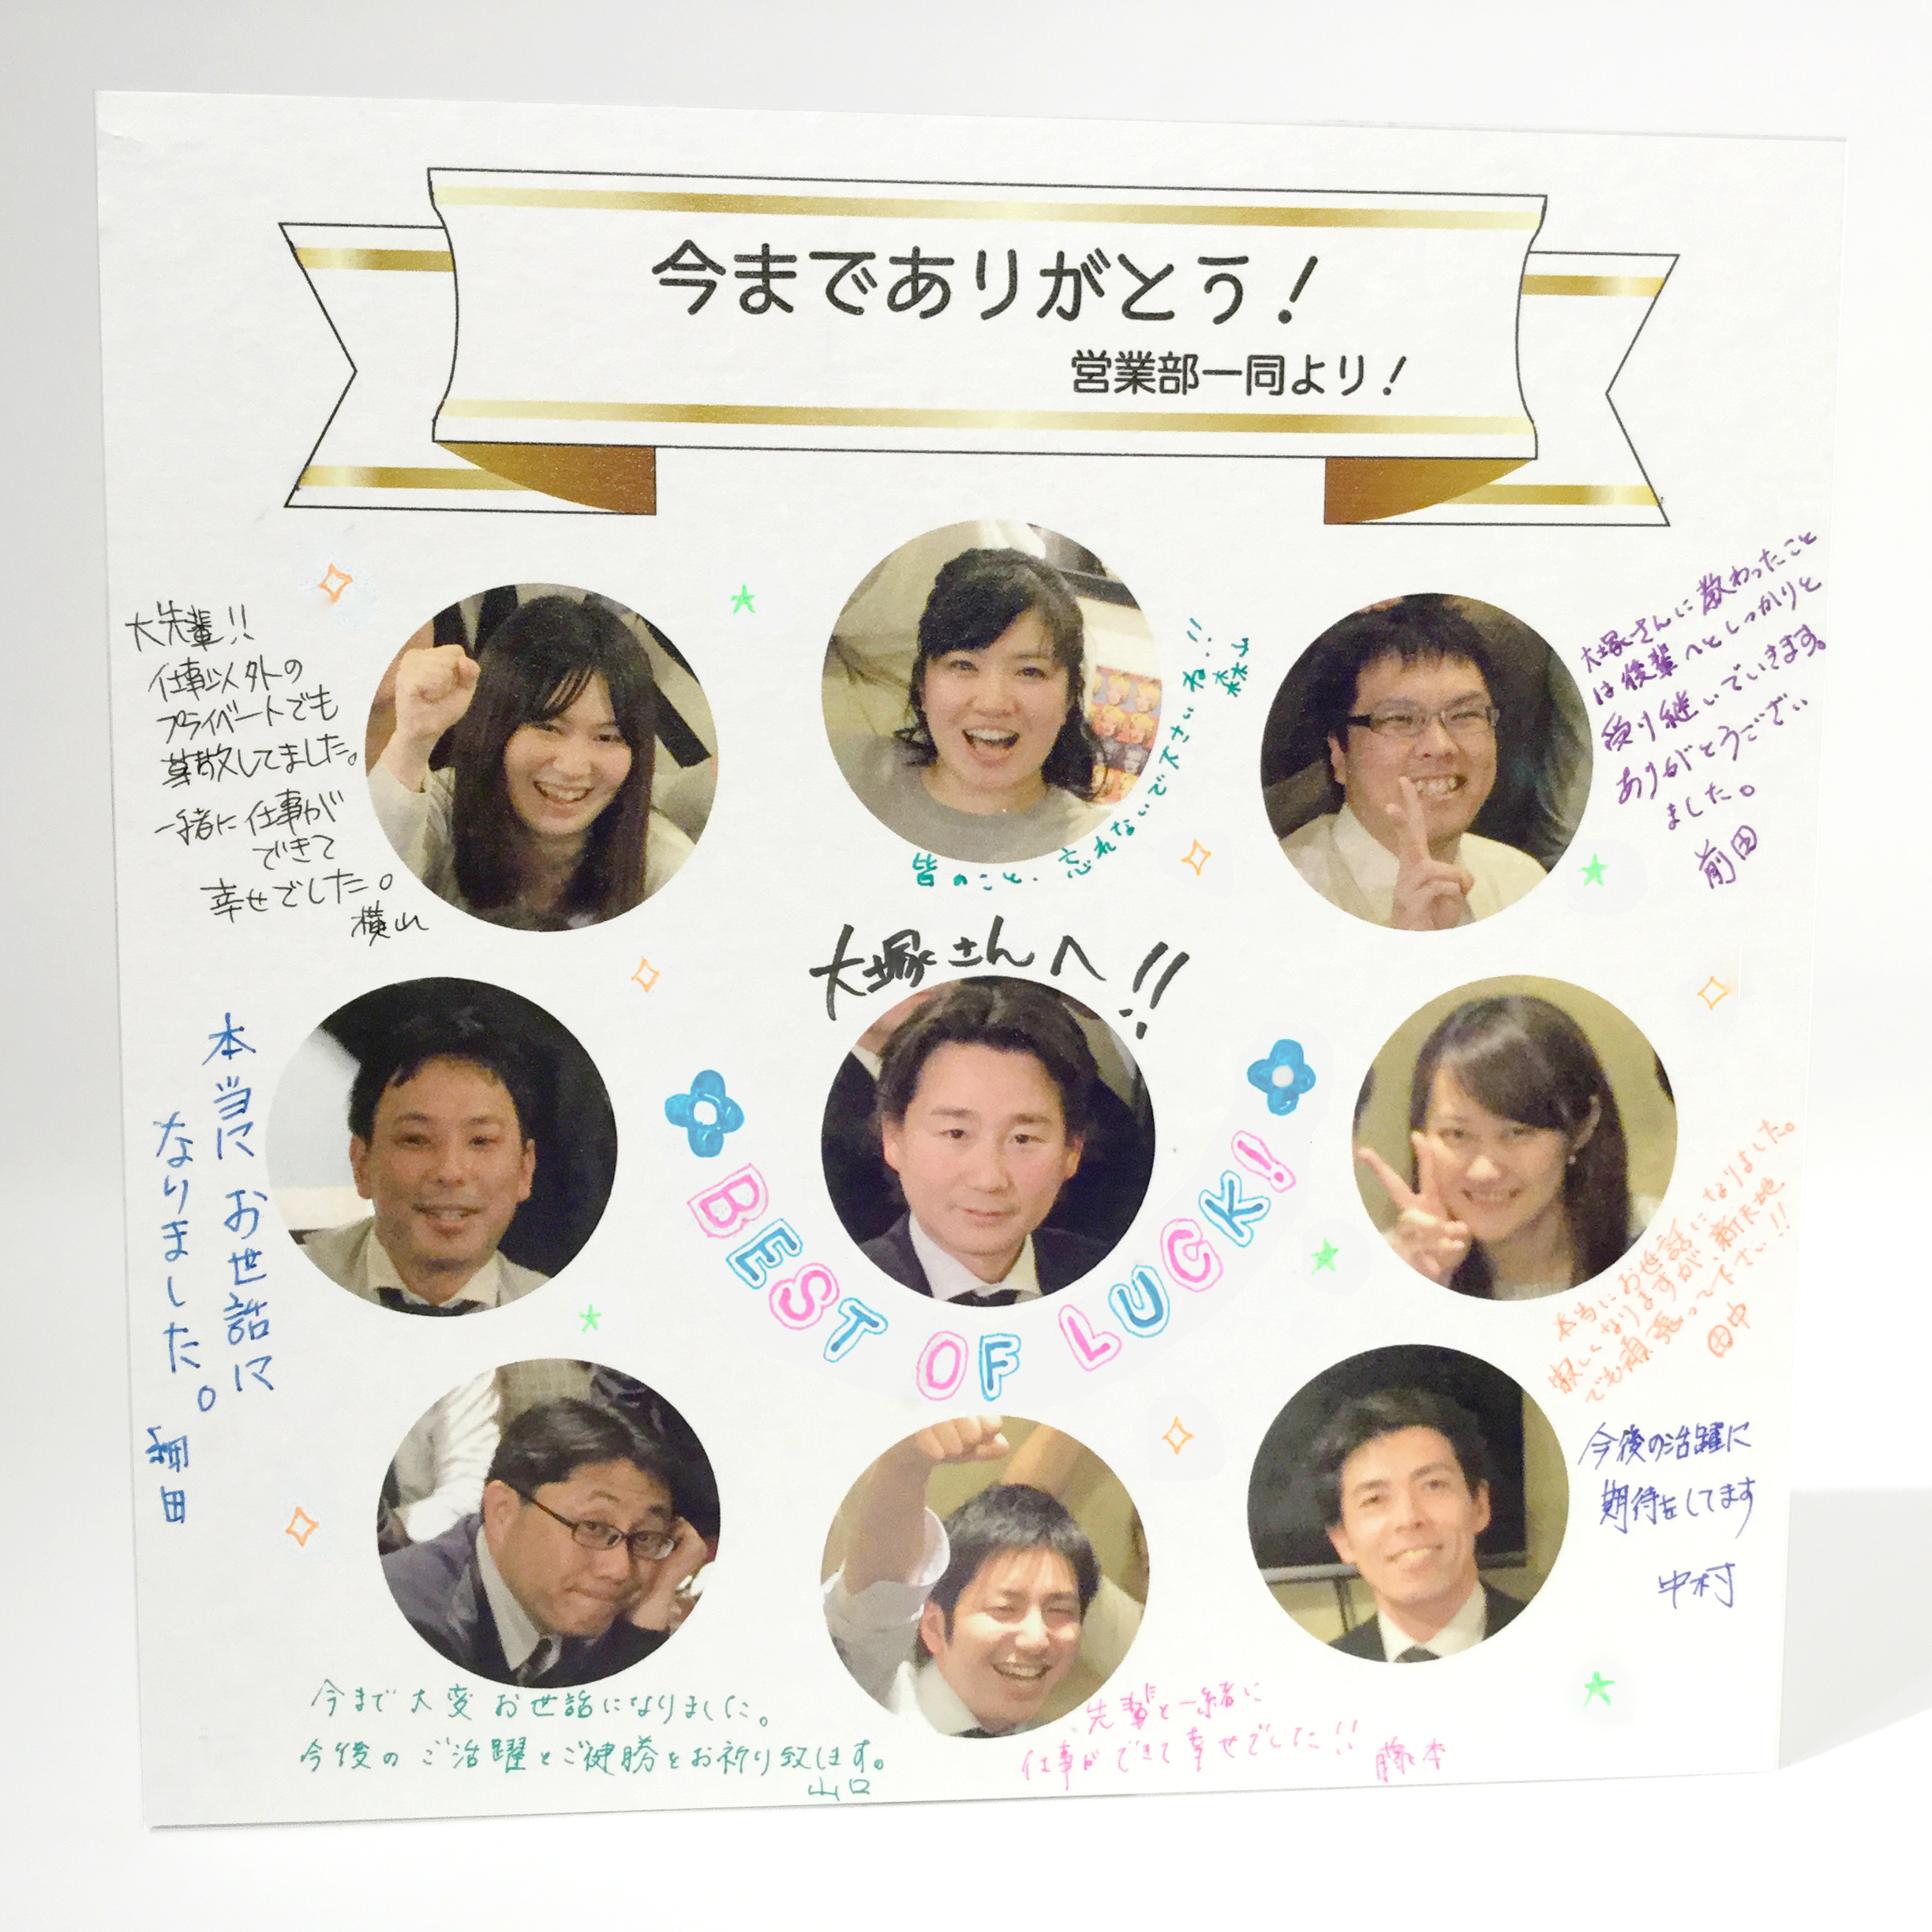 今までありがとう！
営業部一同より！
大先輩!!
仕事以外の
プライベートでも
尊敬してました。
一緒に仕事が
できて
幸せでした。
横山
皆のこと、忘れないで下さいね!!
森山
大塚さんに教わったこと
は後輩へとしっかりと
受り継いでいきます。
ありがとうござい
ました。
前田
大塚さんへ!!
BEST OF LUCK!
本当にお世話に
なりました。
細田
本当にお世話になりました。
寂しくなりますが、新天地
でも頑張って下さい!!
田中
今まで大変お世話になりました。
今後のご活躍とご健勝をお祈り致します。
山口
先輩と一緒に
仕事ができて幸せでした!!
藤本
今後の活躍に
期待をしてます
中村